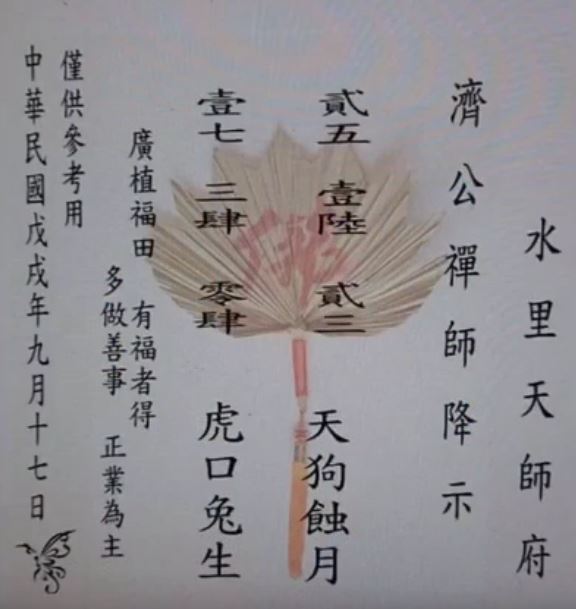 水里天師府
濟公禪師降示
貳五 壹陸 貳三 天狗蝕月
壹七 三肆 零肆 虎口兔生
廣植福田 有福者得
多做善事 正業為主
僅供參考用
中華民國戊戌年九月十七日